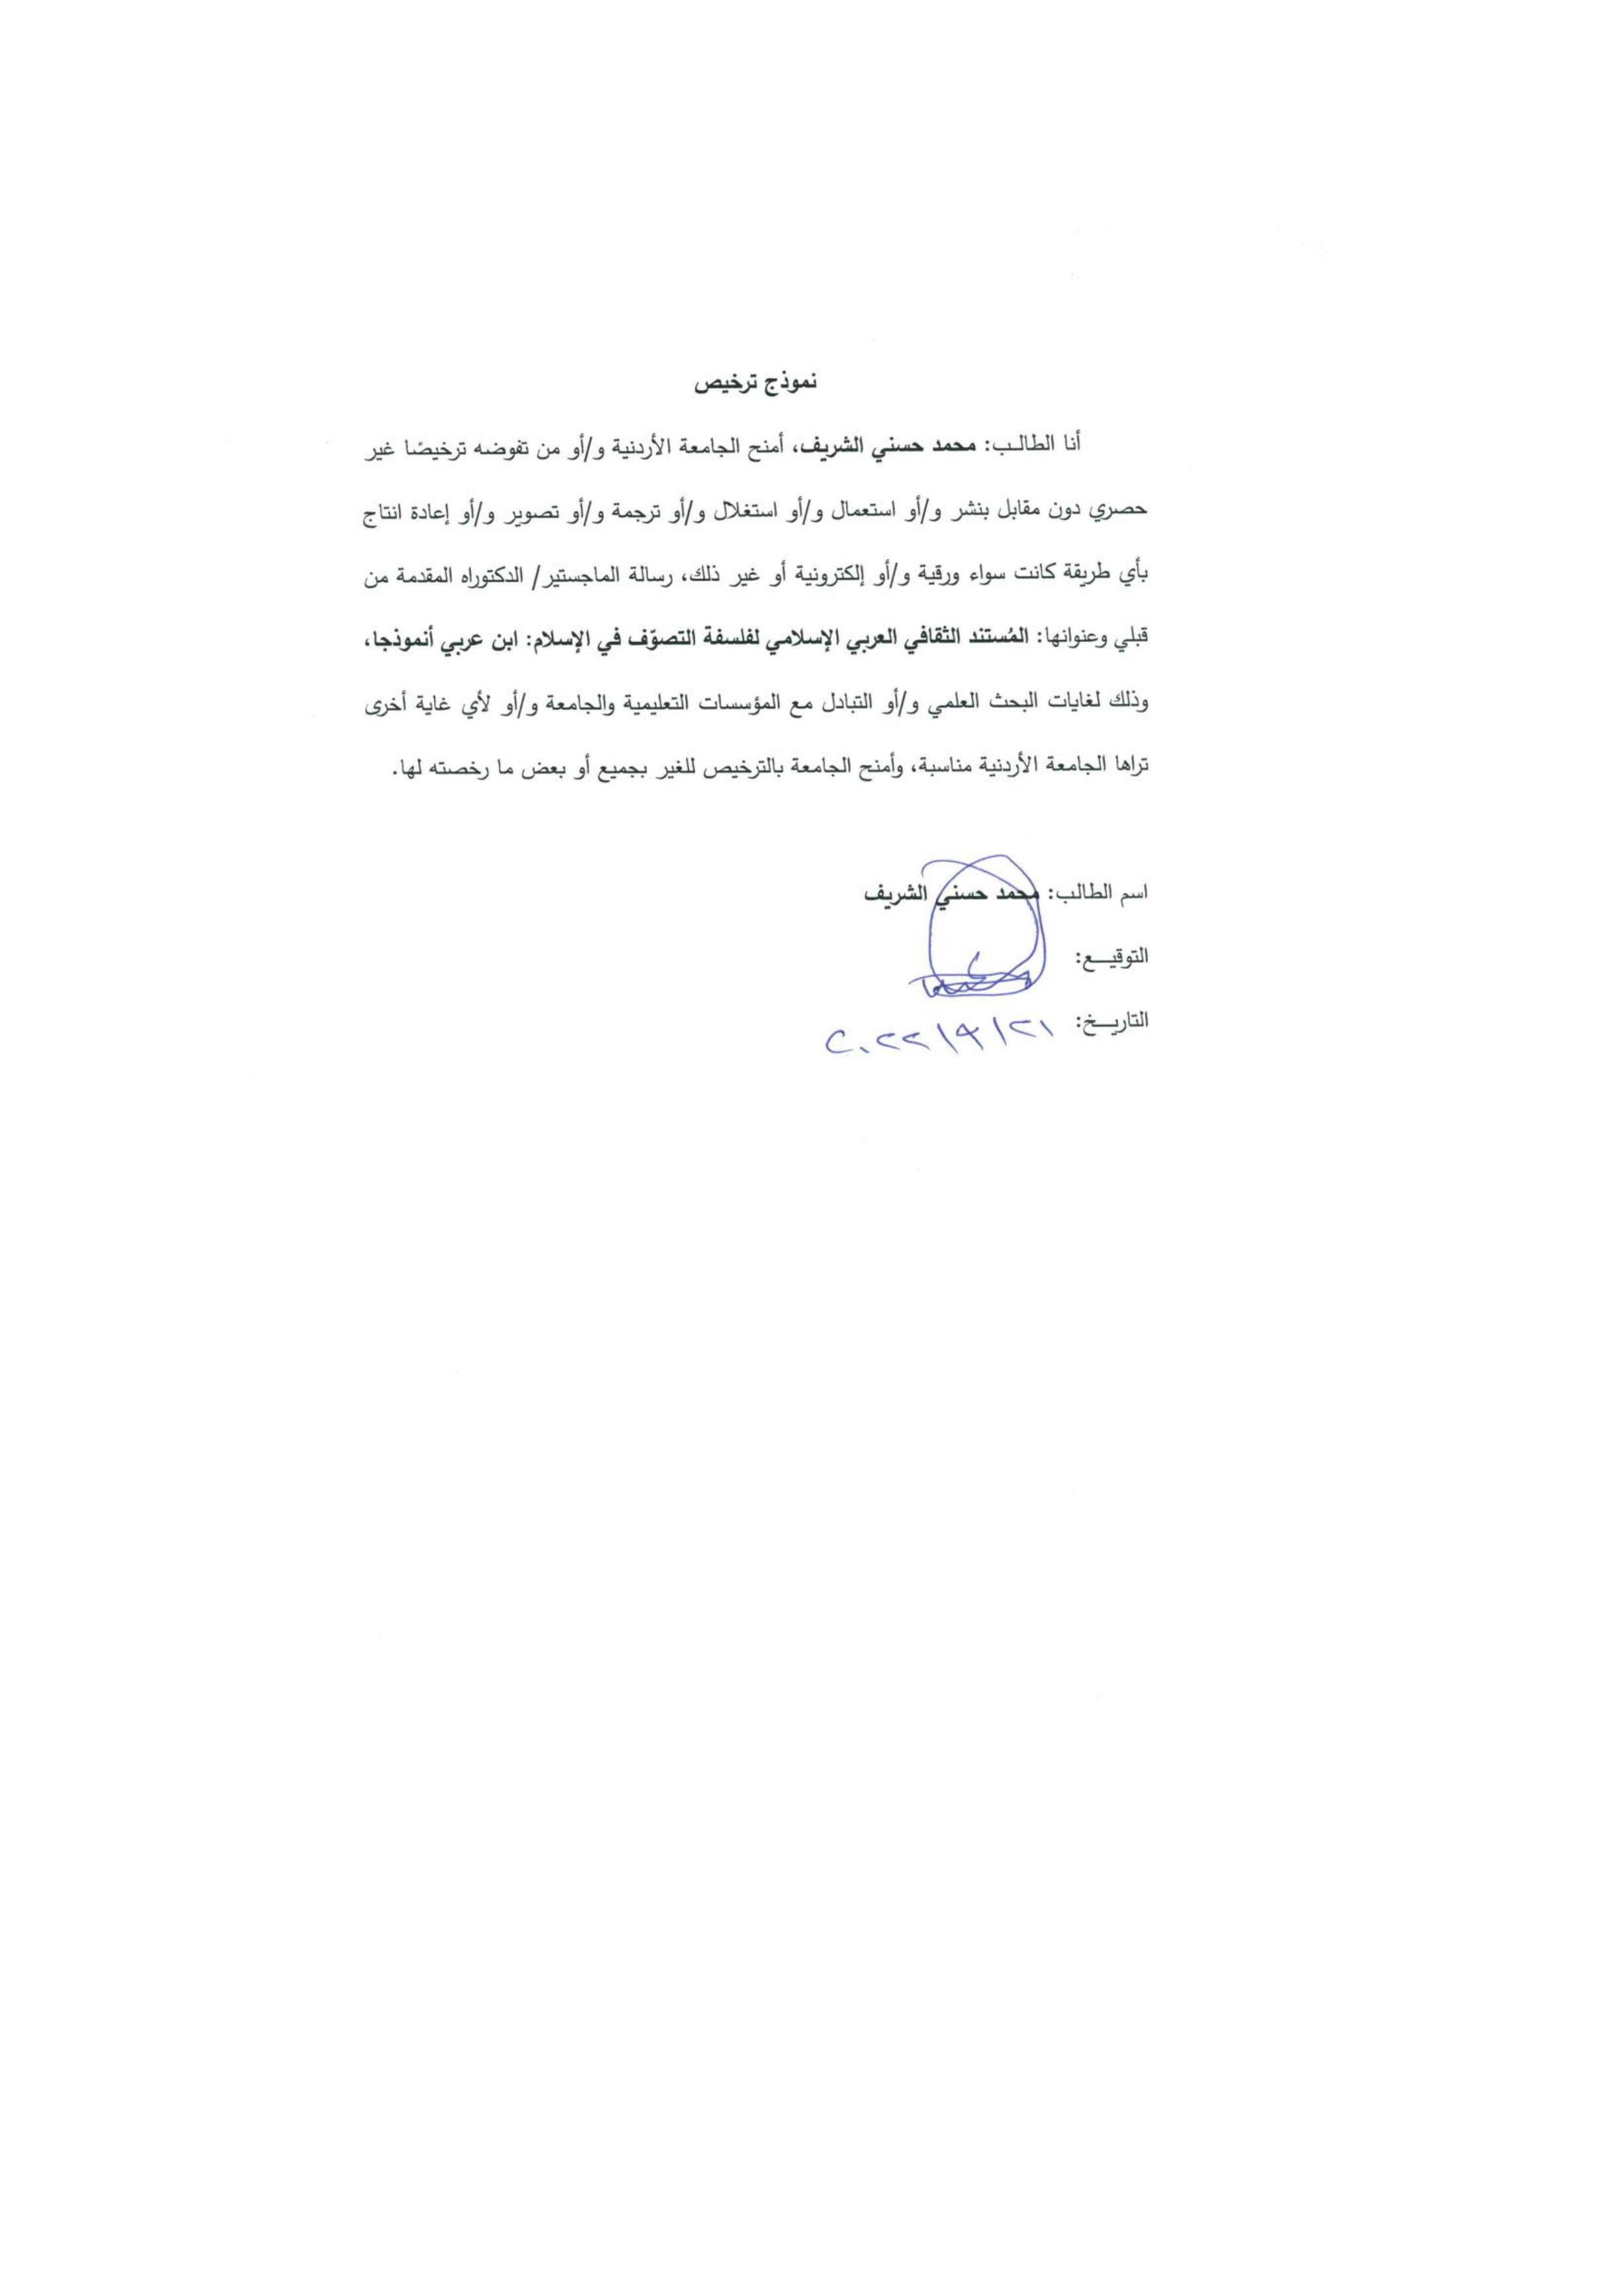 نموذج ترخيص
أنا الطالب: محمد حسني الشريف، أمنح الجامعة الأردنية و/أو من تفوضه ترخيصًا غير
حصري دون مقابل بنشر و/أو استعمال و/أو استغلال و/أو ترجمة و/أو تصوير و/أو إعادة انتاج
بأي طريقة كانت سواء ورقية و/أو إلكترونية أو غير ذلك، رسالة الماجستير/ الدكتوراه المقدمة من
قبلي وعنوانها: المُستند الثقافي العربي الإسلامي لفلسفة التصوّف في الإسلام: ابن عربي أنموذجا،
وذلك لغايات البحث العلمي و/أو التبادل مع المؤسسات التعليمية والجامعة و/أو لأي غاية أخرى
تراها الجامعة الأردنية مناسبة، وأمنح الجامعة بالترخيص للغير بجميع أو بعض ما رخصته لها.
اسم الطالب: محمد حسني الشريف
التوقيع:
التاريخ: